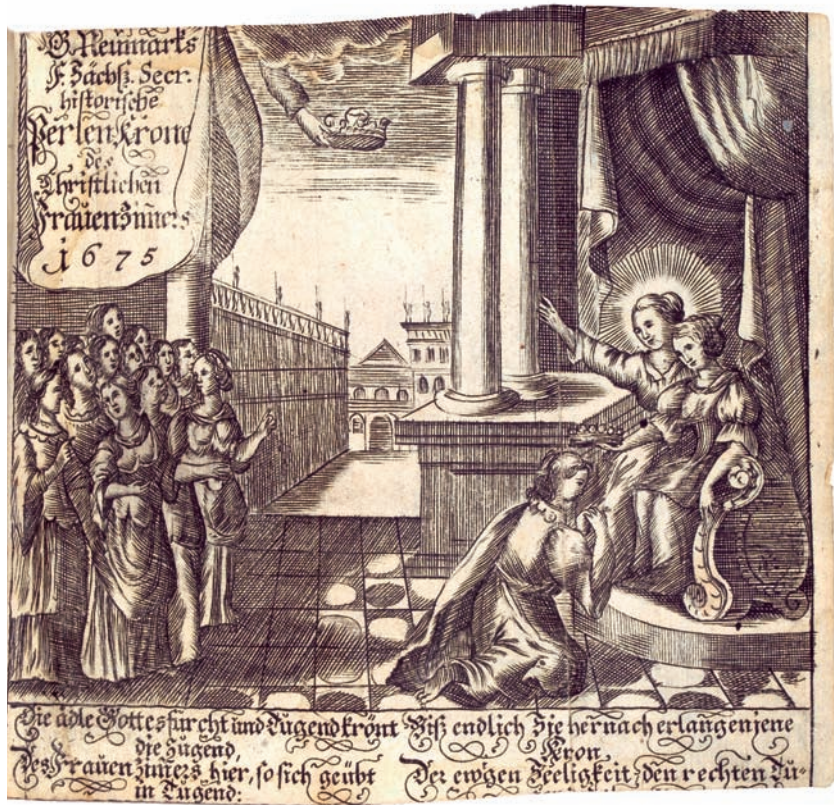 G. Neumarks
F. Sächß. Secr.
historische
Perlen Krone
des
Christlichen
Frauenzim̄ers
1675
Die ädle Gottesfurcht und Tugend krönt
die Jugend,
Des Frauenzim̄ers hier, so sich geübt
in Tugend:
Biß endlich Sie hernach erlangen jene
Kron
Der ewgen Seeligkeit, den rechten Tu-